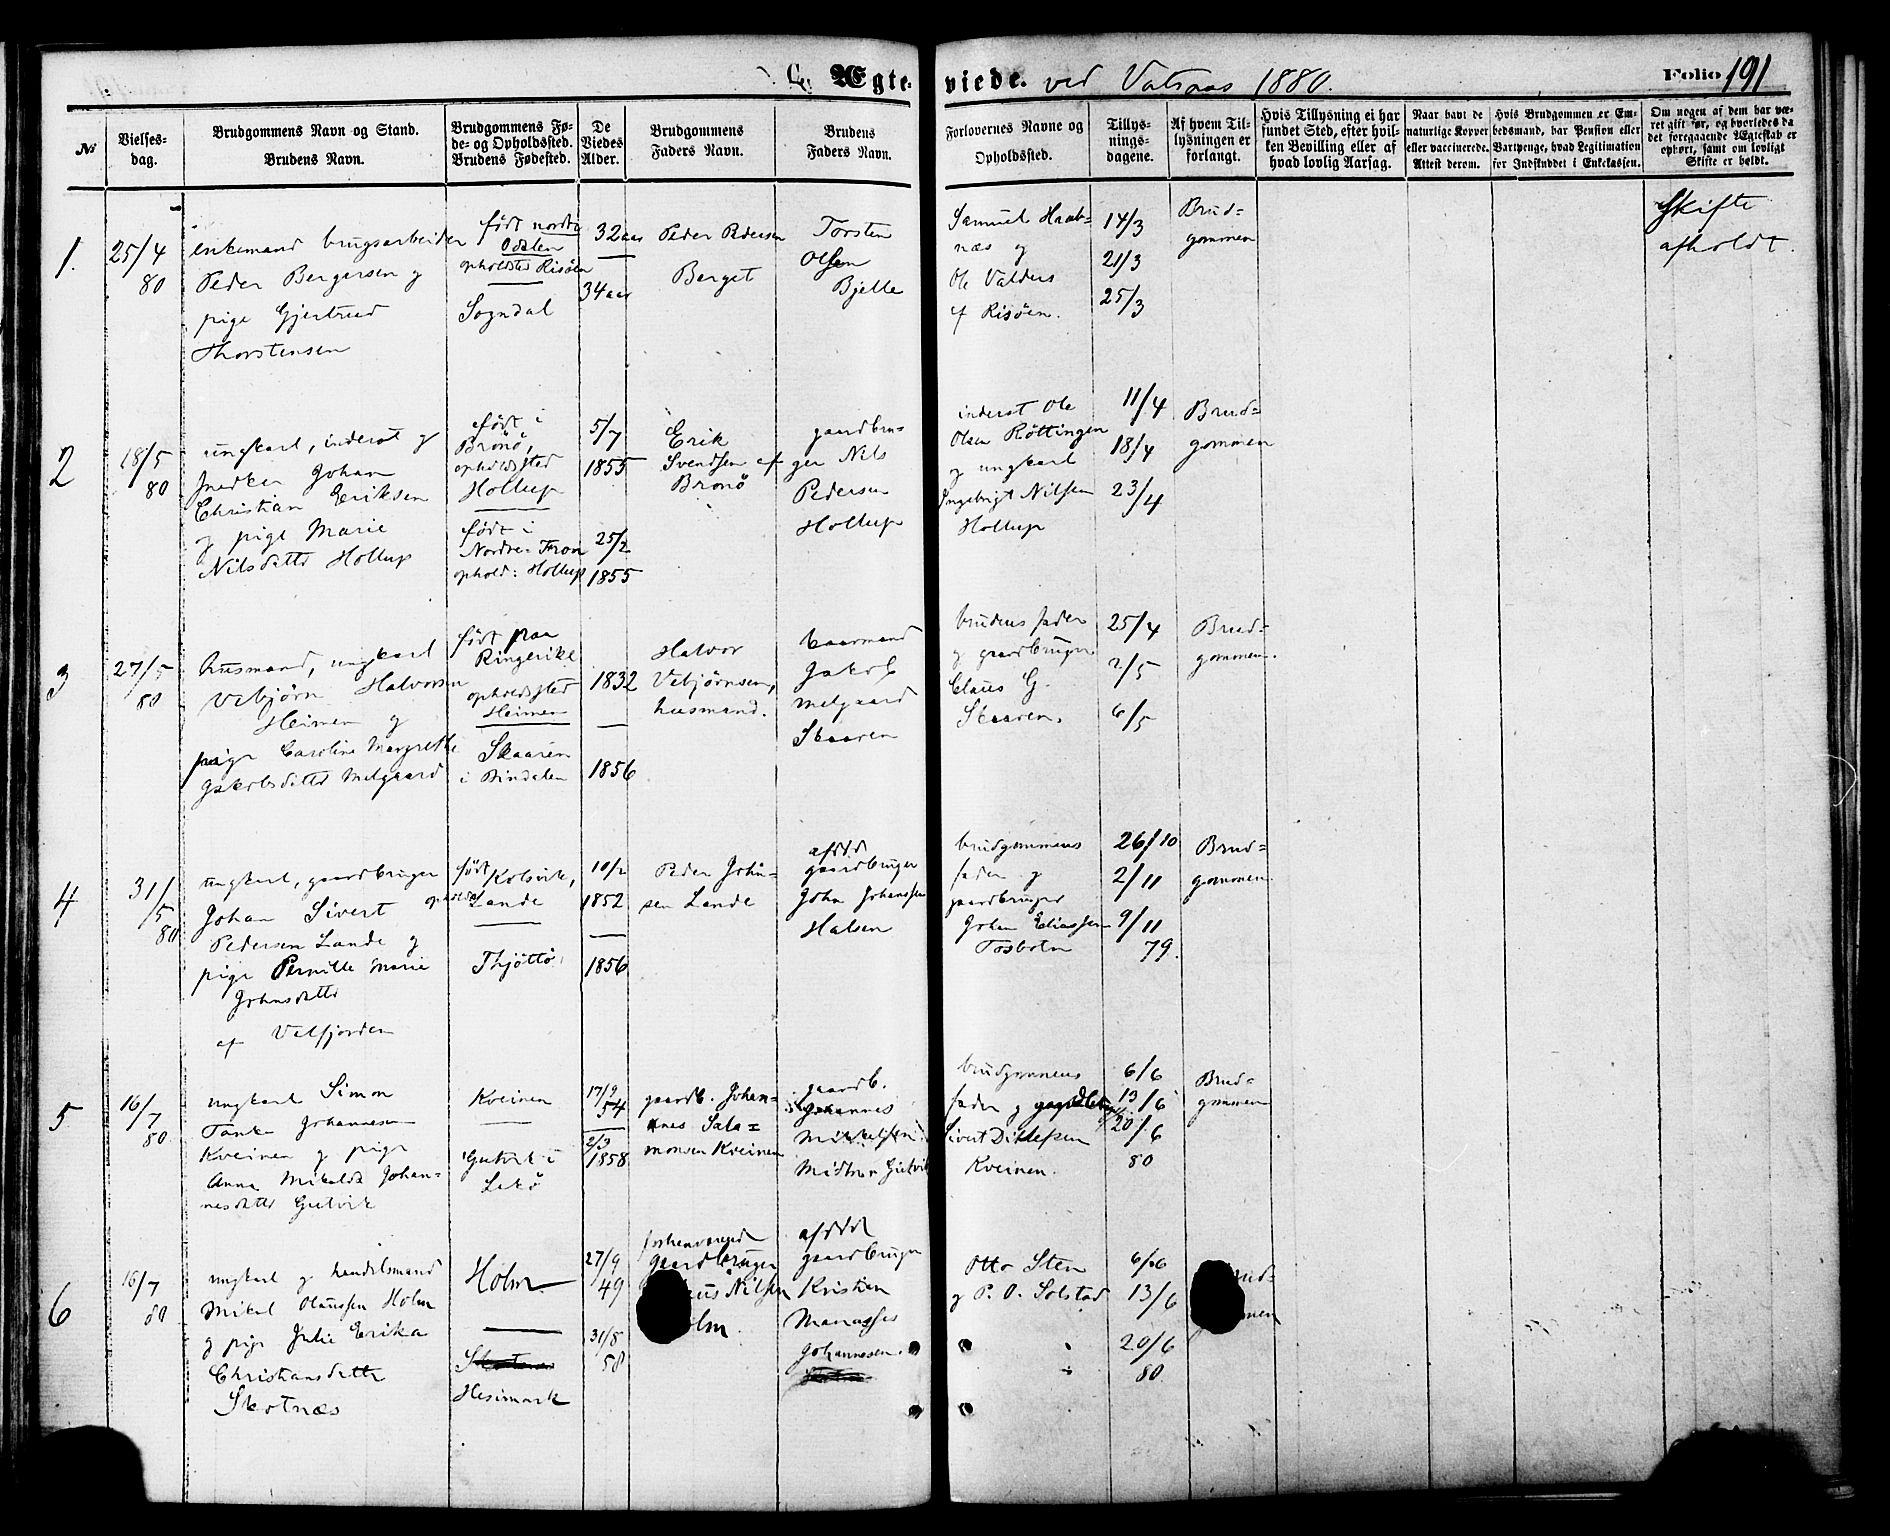 C. Ægteviede. ved Vatsaas 1880. Folio 191
№
Vielsesdag.
Brudgommens Navn og Stand.
Brudens Navn.
Brudgommens Føde- og Opholdssted.
Brudens Fødested.
De Viedes Alder.
Brudgommens Faders Navn.
Brudens Faders Navn.
Forlovernes Navne og Opholdssted.
Tillysningsdagene.
Af hvem Tillysningen er forlangt.
Hvis Tillysning ei har fundet Sted, efter hvilken Bevilling eller af hvad lovlig Aarsag.
Naar havt de naturlige Kopper eller vaccinerede. Attest derom.
Hvis Brudgommen er Embedsmand, har Pension eller Vartpenge, hvad Legitimation for Indskuddet i Enkekassen.
Om nogen af dem har været gift før, og hvorledes da det foregaaende Ægteskab er ophørt, samt om lovligt Skifte er holdt.
1.
25/4
80
enkemand brugsarbeider
Peder Bergersen og
pige Gjertrud
Thorstensen
født nordre
Odalen
opholdsted Risöen
Sogndal
32 aar
34 aar
Peder Pedersen
Berget
Torsten
Olsen
Bjelle
Samuel
næs og
Ole Valders
af Risöen.
14/3
21/3
25/3
Brud=
gommen
Skifte
afholdt.
2
18/5
80
ungkarl, inderst og
Johan
Christian Eriksen
og pige Marie
Nilsdatte Hollup
født i
Brönö,
opholdssted
Hollup
født i
Nordre-Fron
ophold: Hollup
5/7
1855
25/2
1855
Erik
Svendsen af
Brönö
gaardbru-
ger Nils
Pedersen
Hollup
inderst Ole
Olsen Röttingen
og ungkarl
Ingebrigt Nilsen
Hollup
11/4
18/4
23/4
Brud=
gommen
3
27/5
80
husmand, ungkarl
Vebjörn Halvorsen
Heimen og
pige Caroline Margrethe
Jakobsdatte Melgaard
født paa
Ringerike
opholdssted
Heimen
Skaaren
i Bindalen
1832
1856
Halvor
Vebjørnsen,
husmand.
baarmand
Jakob
Melgaard
Skaaren
brudens fader
og gaardbruger
Claus G.
Skaaren.
25/4
2/5
6/5
Brud=
gommen.
4
31/5
80
ungkarl, gaardbruger
Johan Sivert
Pedersen Lande og
pige Pernille Marie
Johnsdatte
af Velfjorden
født Kolsvik,
opholdst Lande
Thjöttö
10/2
1852
1856
Peder John-
sen Lande
afdöd
gaardbruger
John Johanssen
Halsen
brudgommens
fader og
gaardbruger
Johan Eliassen
Tosbotn
26/10
2/11
9/11
79.
Brud=
gommen.
5
16/7
80
ungkarl Simon
Tanke Johannesen
Kveinen og pige
Anna Mikalda Johan-
nesdatte Gutvik
Kveinen
Gutvik i
Lekö
17/9
54
2/3
1858
gaardb. Johan-
nes Sala=
monsen Kveinen
gaardb.
Johannes
Mikkelsen
Midtre Gutvik
brudgommens
fader og
Sivert Ditlefsen
Kveinen.
6/6
13/6
20/6
80
Brud=
gommen
6
16/7
80
ungkarl og handelsmand
Mikal Olaussen Holm
og pige Julie Erika
Christiansdatte
Skotnæs
Holm
Hesimark
27/9
49
31/8
58
forhenværend
gaardbruger
Nilsen
afdöd
gaardbruger
Kristian
Manasses
Johannesen.
Otto Sten
og P. O. Solstad
6/6
13/6
20/6
80.